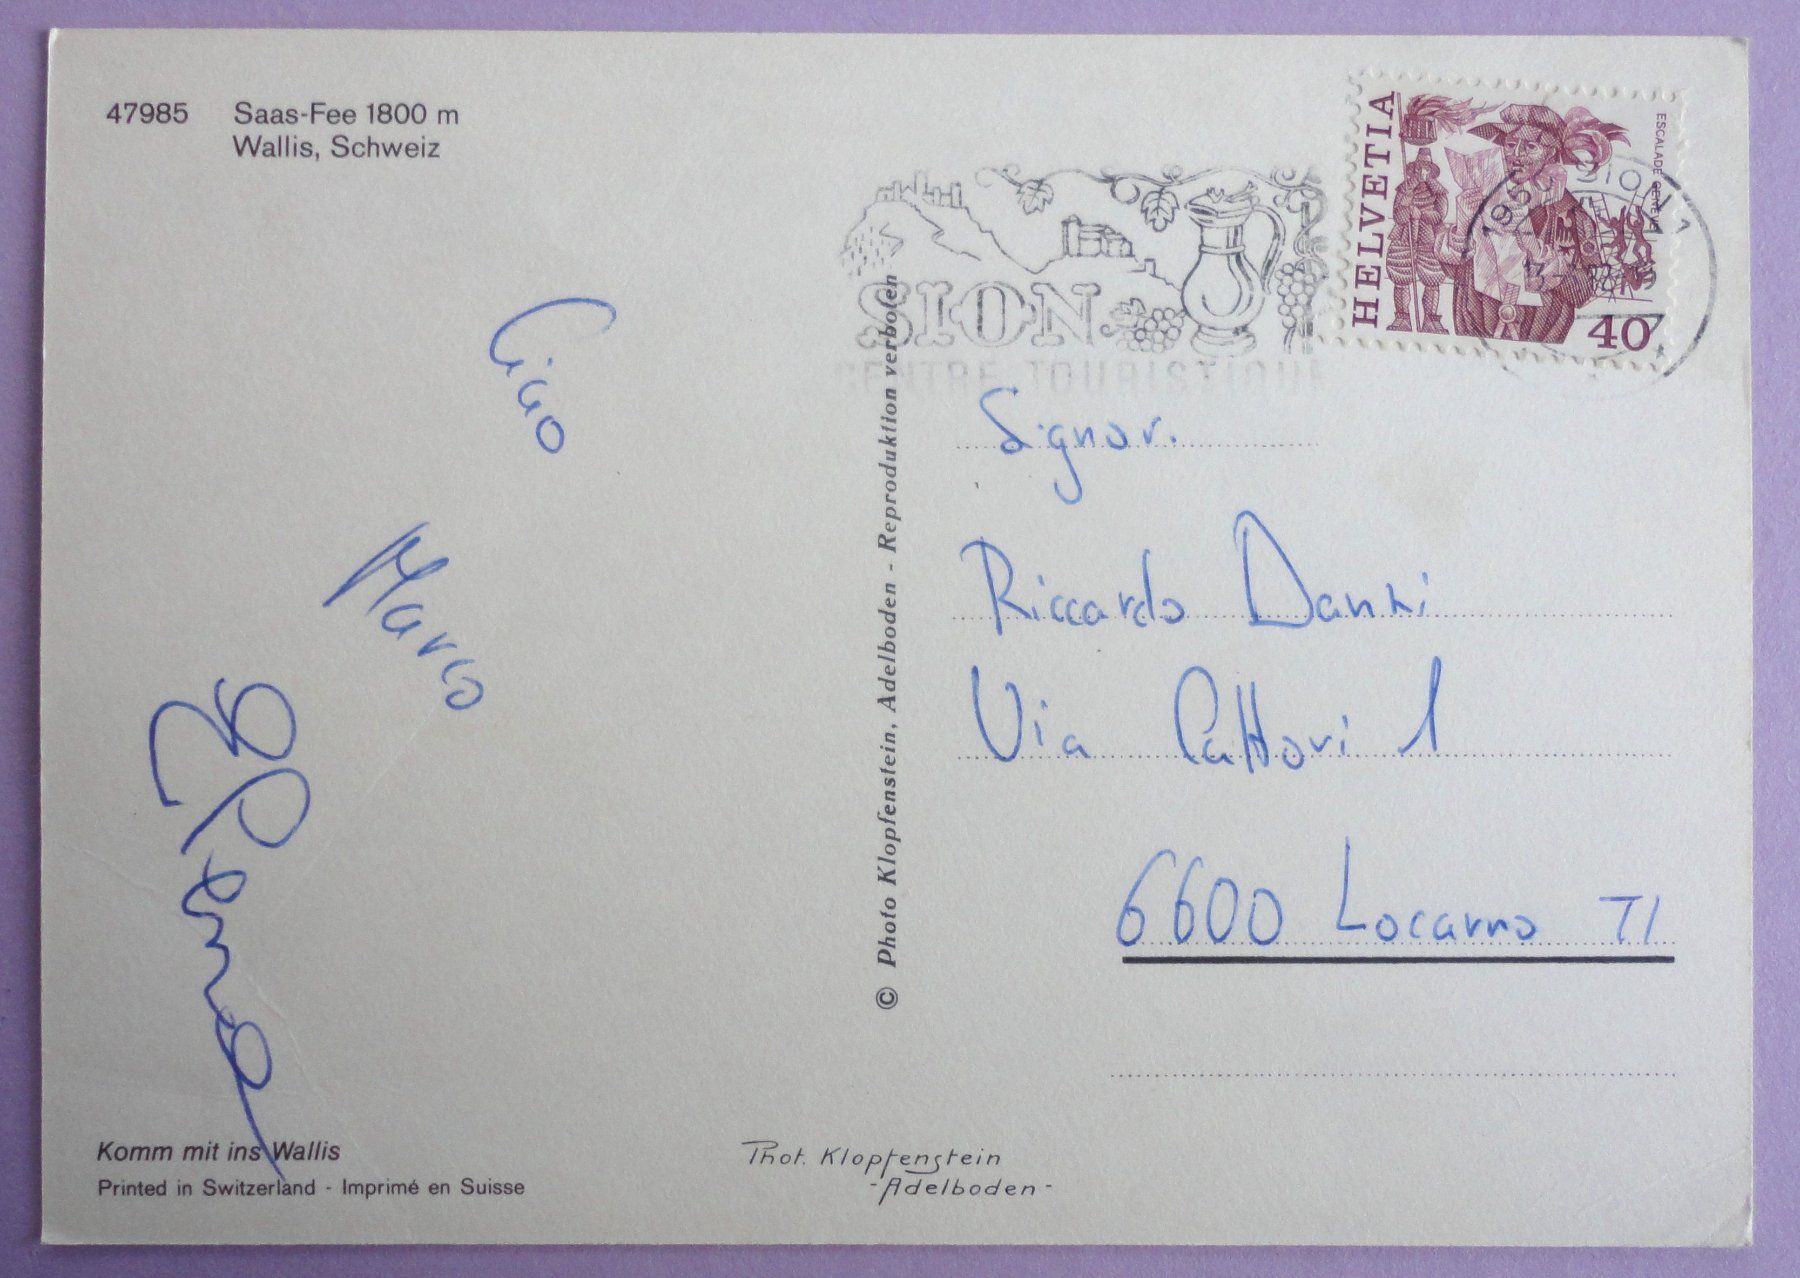 47985 Saas-Fee 1800 m
Wallis, Schweiz
Ciao
Marco
Komm mit ins Wallis
Printed in Switzerland - Imprimé en Suisse
© Photo Klopfenstein, Adelboden - Reproduktion verboten
Phot. Klopfenstein
- Adelboden -
SION
CENTRE TOURISTIQUE
HELVETIA
ESCALADE
40
SION 1
1950
Signor.
Riccardo Danni
Via Cattori 1
6600 Locarno TI